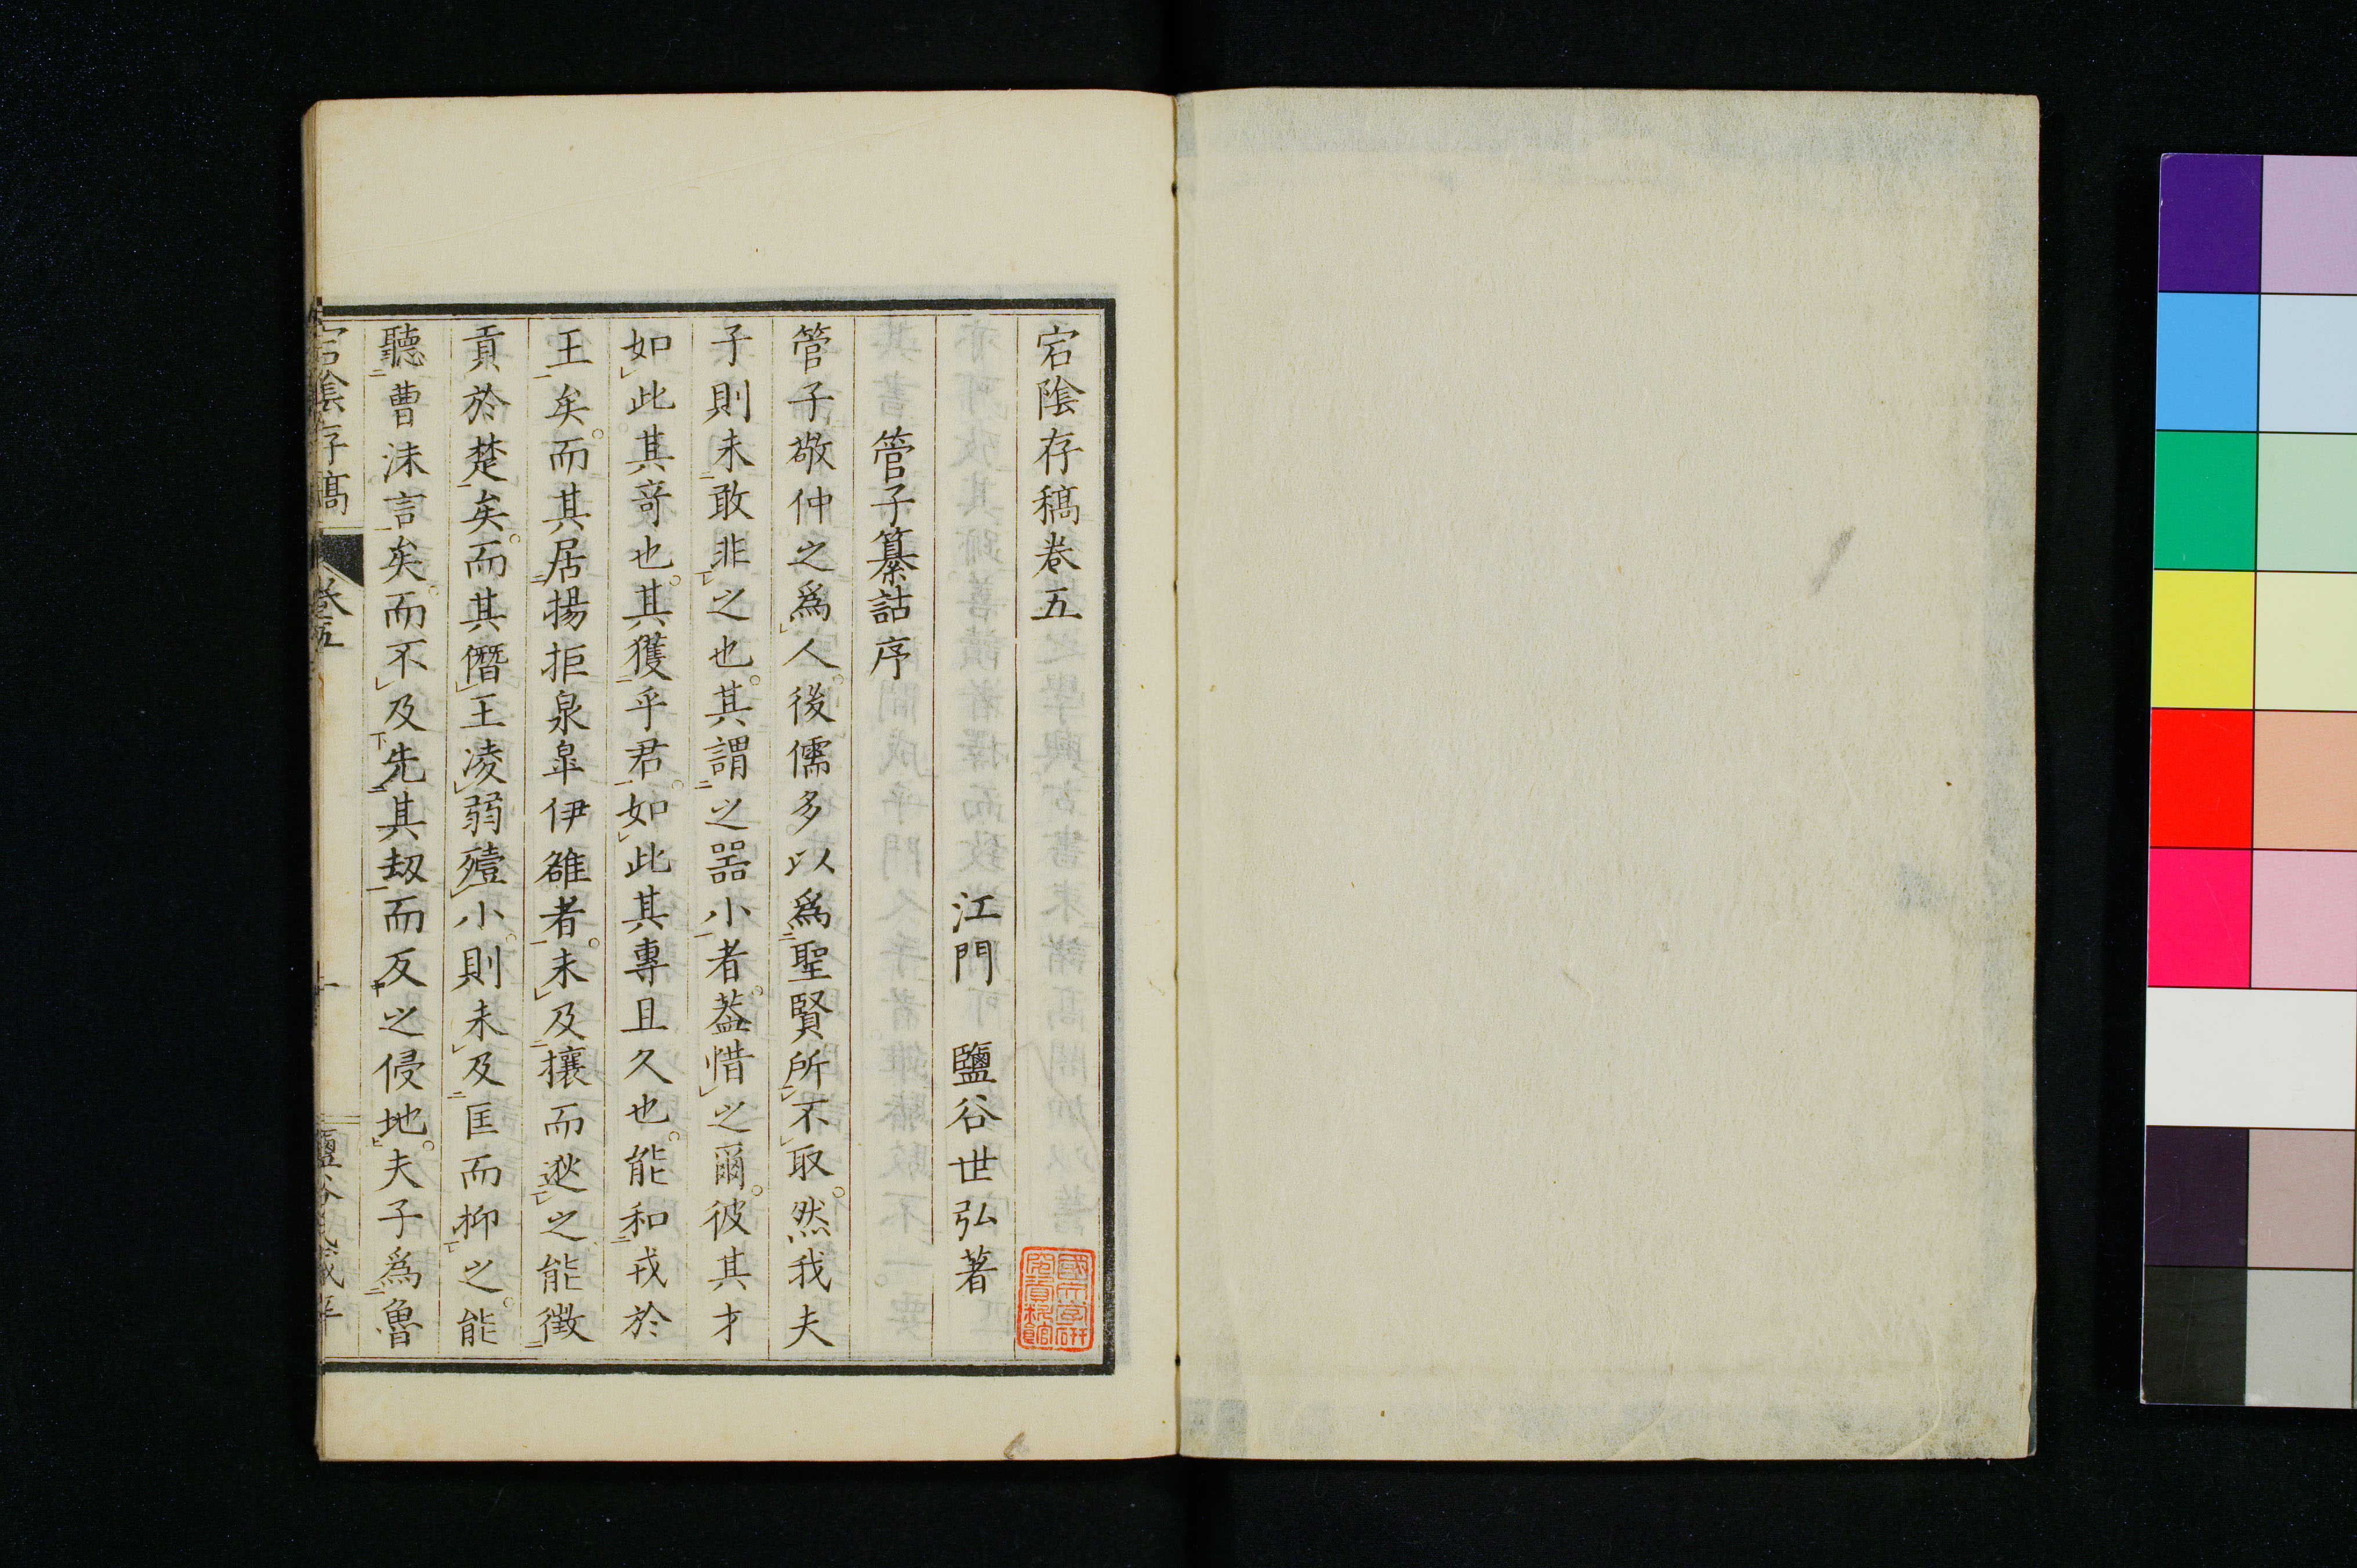 宕陰存稿卷五
江門 鹽谷世弘著
管子纂詁序
管子敬仲之爲人。後儒多以爲聖賢所不取。然我夫
子則未敢非之也。其謂之噐小者。葢惜之爾。彼其才
如此其竒也。其獲乎君。如此其專且久也。能和戎於
王矣。而其居揚拒泉臯伊雒者。未及攘而逖之。能徵
貢於楚矣。而其僭王凌弱殪小。則未及匡而抑之。能
聽曹沬言矣。而不及先其劫而反之侵地。夫子爲魯
宕陰存稿 卷五 一 鹽谷氏藏
國文學研究資料館